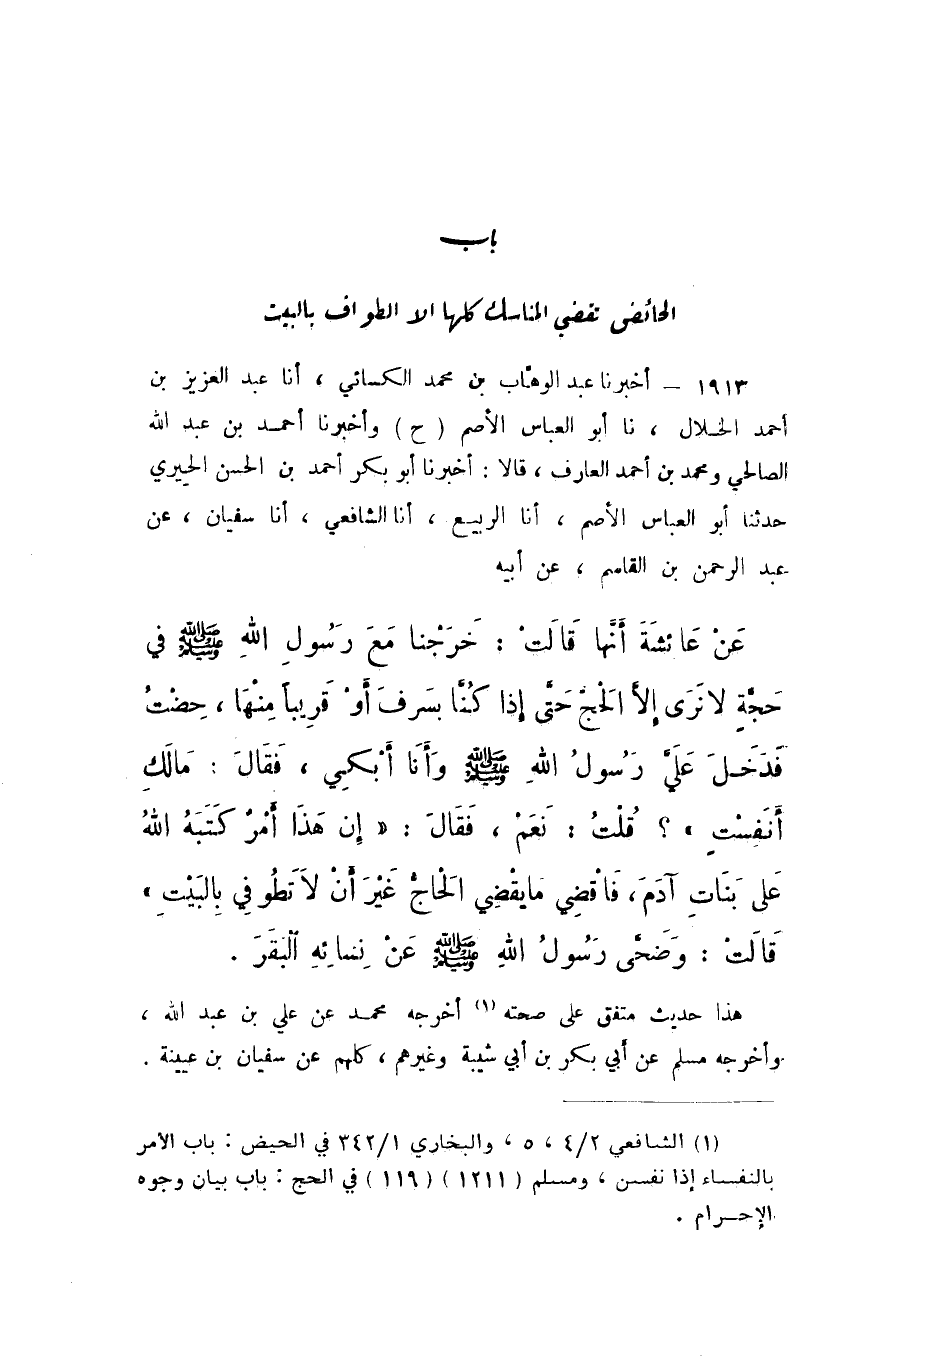 باب
الحائض تقضي المناسك كلها الا الطواف بالبيت
١٩١٣ – أخبرنا عبد الوهّاب بن محمد الكسائي ، أنا عبد العزيز بن
أحمد الخلال ، نا أبو العباس الأصم ( ح ) وأخبرنا أحمد بن عبد الله
الصالحي ومحمد بن أحمد العارف ، قالا : أخبرنا أبو بكر أحمد بن الحسن الحيري
حدثنا أبو العباس الأصم ، أنا الربيع ، أنا الشافعي ، أنا سفيان ، عن
عبد الرحمن بن القاسم ، عن أبيه
عَنْ عَائشَةَ أَنَّها قَالَتْ : خَرَجْنا مَعَ رَسُولِ اللهِ ﷺ في
حَجَّةٍ لا نَرَى إلاَّ الَحْجَّ حَتَّى إذا كُنَّا بسَرفَ أَوْ قَريباً مِنْهَا ، حِضْتُ
فَدَخَلَ عَلَيَّ رَسُولُ اللهِ ﷺ وَأَنَا أَبْكي ، فَقَالَ : مَالَكِ
أَنَفِسْتِ » ؟ قُلْتُ : نَعَمْ ، فَقَالَ : « إن هَذَا أَمْرٌ كَتَبَهُ اللهُ
عَلى بَنَاتِ آدَمَ، فَاقْضِي مَايقْضِي الَحْاجُّ غَيْرَ أَنْ لاَ تَطُوفي بِالبَيْتِ »
قَالَتْ : وَضَحَّى رَسُولُ اللهِ ﷺ عَنْ نِسائِهِ الْبَقَرَ .
هذا حديث متفق على صحته (١) أخرجه محمد عن علي بن عبد الله ،
وأخرجه مسلم عن أبي بكر بن أبي شيبة وغيرهم ، كلهم عن سفيان بن عيينة .
(١) الشافعي ٤/٢ ، ٥ ، والبخاري ٣٤٢/١ في الحيض : باب الأمر
بالنفساء إذا نفسن ، ومسلم ( ١٢١١ ) ( ١١٩ ) في الحج : باب بيان وجوه
الإحرام .